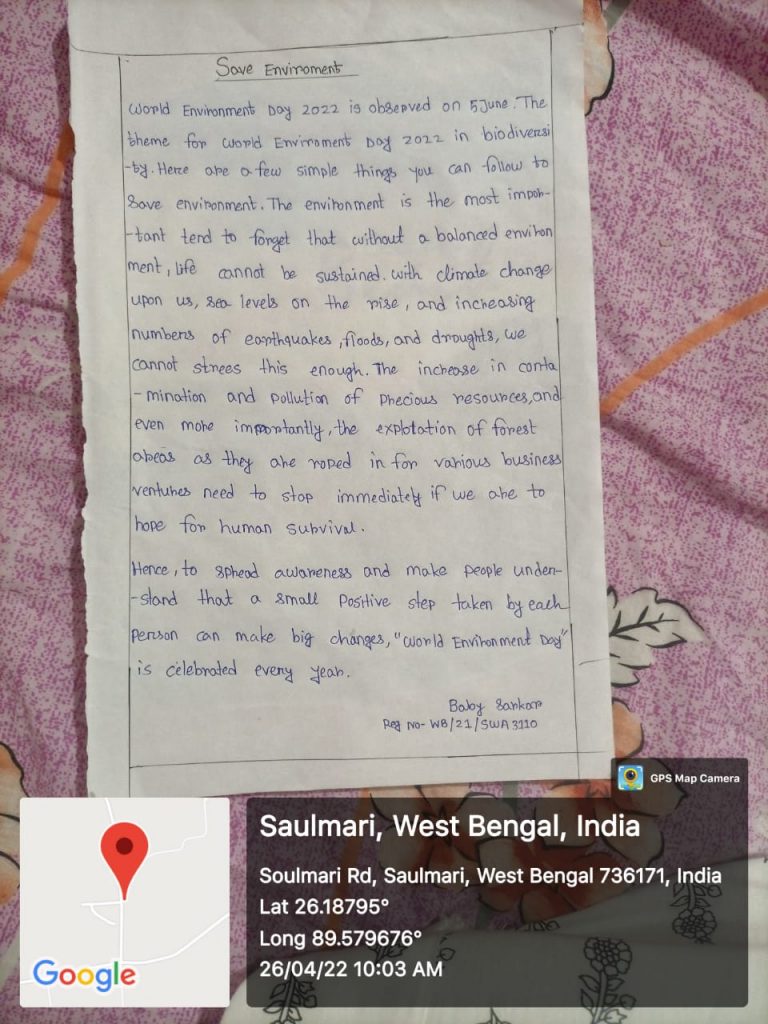 Save Enviroment
World Environment Day 2022 is observed on 5 June. The
theme for World Enviroment Day 2022 in biodiversi
-ty. Here are a few simple things you can follow to
Save environment. The environment is the most impor-
-tant tend to forget that without a balanced environ
ment, life cannot be sustained. With climate change
upon us, sea levels on the rise, and increasing
numbers of earthquakes, floods, and droughts, we
cannot strees this enough. The increase in conta
-mination and Pollution of Precious resources, and
even more importantly, the explotation of forest
areas as they are roped in for various business
ventures need to stop immediately if we are to
hope for human survival.
Hence, to spread awareness and make People under-
-stand that a small Positive step taken by each
Person can make big changes, "World Environment Day"
is celebrated every year.
Baby Sarkar
Reg No- WB/21/SWA 3110
GPS Map Camera
Saulmari, West Bengal, India
Soulmari Rd, Saulmari, West Bengal 736171, India
Lat 26.18795°
Long 89.579676°
26/04/22 10:03 AM
Google